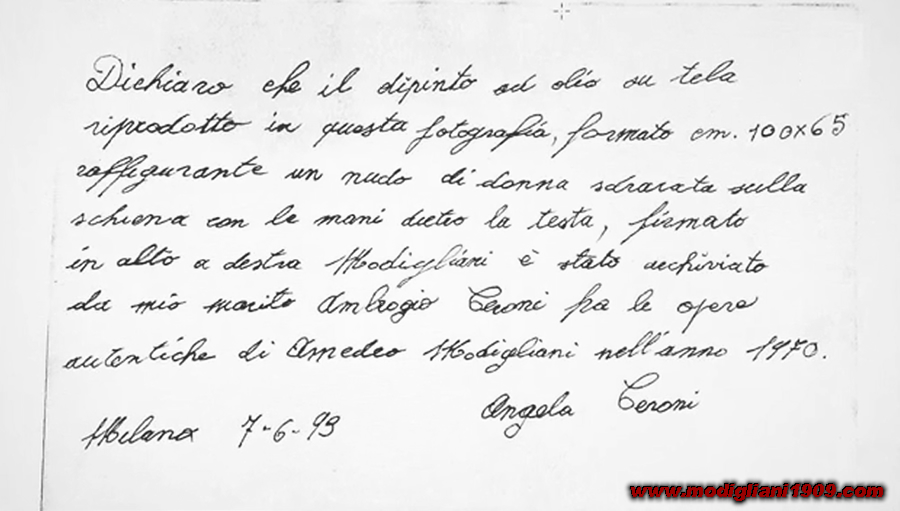 Dichiaro che il dipinto ad olio su tela
riprodotto in questa fotografia, formato cm. 100x65
raffigurante un nudo di donna sdraiata sulla
schiena con le mani dietro la testa, firmato
in alto a destra Modigliani è stato archiviato
da mio marito Ambrogio Ceroni fra le opere
autentiche di Amedeo Modigliani nell'anno 1970.
Angela Ceroni
Milano 7-6-93
www.modigliani1909.com